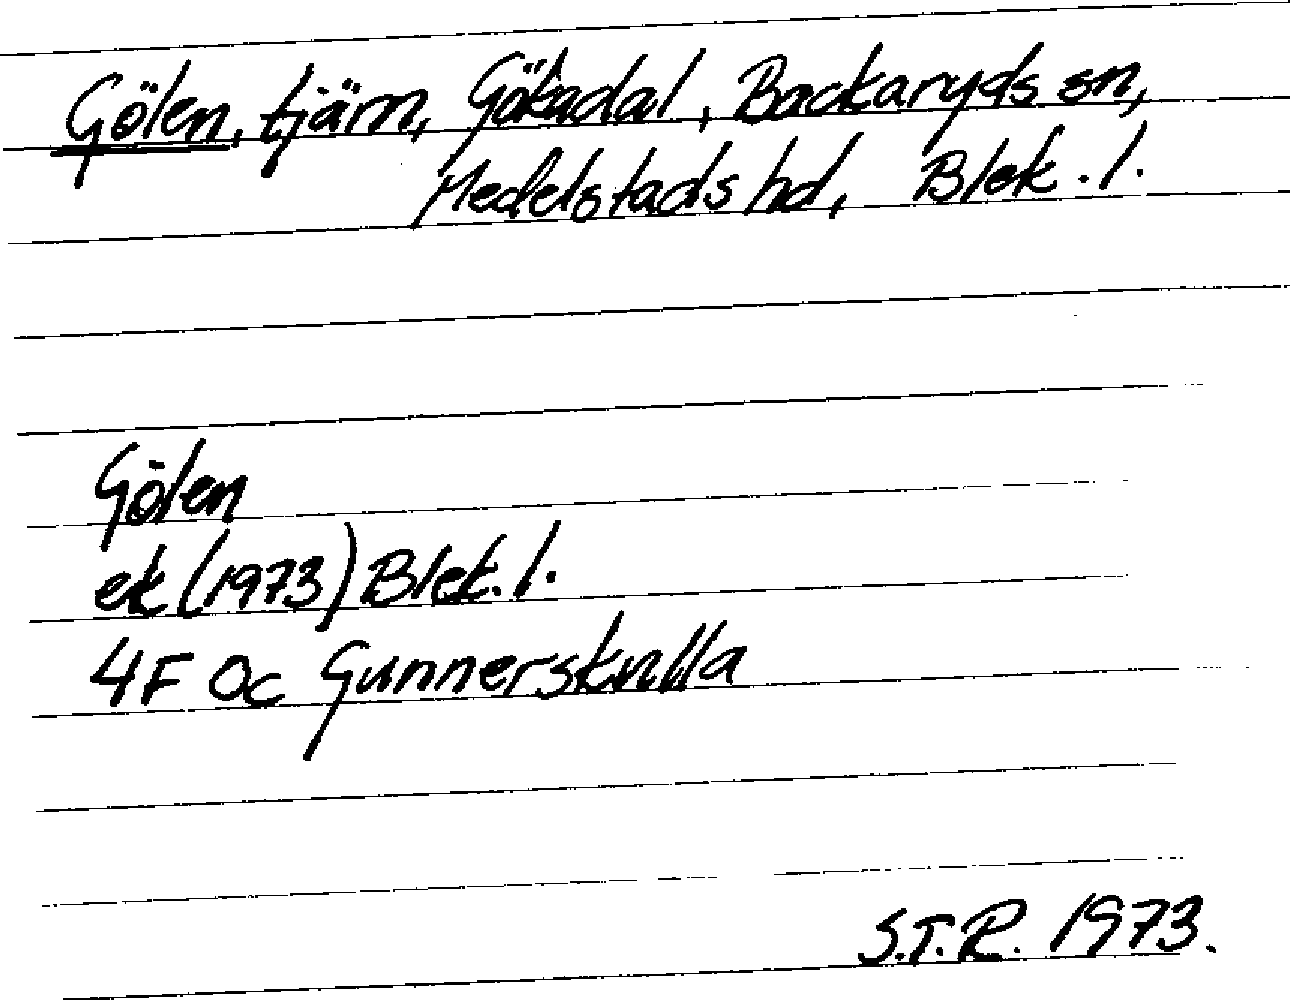 Gölen, tjärn, Gökadal, Backaryds sn,
Medelstads hd, Blek. l.
Gölen
ek (1973) Blek. l.
4F 0c Gunnerskulla
S.T.R. 1973.